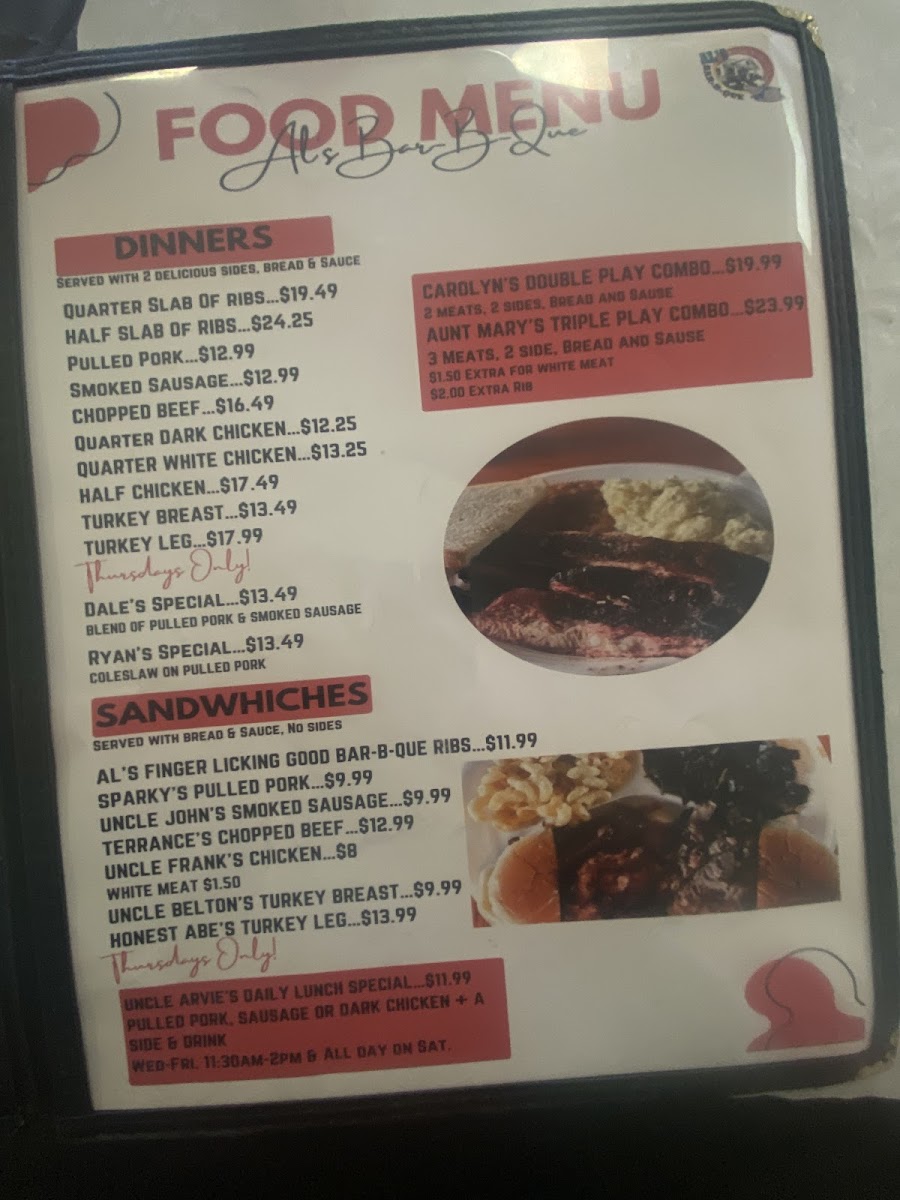 FOOD MENU
Al's Bar-B-Que
DINNERS
SERVED WITH 2 DELICIOUS SIDES, BREAD & SAUCE
QUARTER SLAB OF RIBS...$19.49
HALF SLAB OF RIBS...$24.25
PULLED PORK...$12.99
SMOKED SAUSAGE...$12.99
CHOPPED BEEF...$16.49
QUARTER DARK CHICKEN...$12.25
QUARTER WHITE CHICKEN...$13.25
HALF CHICKEN...$17.49
TURKEY BREAST...$13.49
TURKEY LEG...$17.99
Thursdays Only!
DALE'S SPECIAL...$13.49
BLEND OF PULLED PORK & SMOKED SAUSAGE
RYAN'S SPECIAL...$13.49
COLESLAW ON PULLED PORK
CAROLYN'S DOUBLE PLAY COMBO...$19.99
2 MEATS, 2 SIDES, BREAD AND SAUSE
AUNT MARY'S TRIPLE PLAY COMBO...$23.99
3 MEATS, 2 SIDE, BREAD AND SAUSE
$1.50 EXTRA FOR WHITE MEAT
$2.00 EXTRA RIB
SANDWHICHES
SERVED WITH BREAD & SAUCE, NO SIDES
AL'S FINGER LICKING GOOD BAR-B-QUE RIBS...$11.99
SPARKY'S PULLED PORK...$9.99
UNCLE JOHN'S SMOKED SAUSAGE...$9.99
TERRANCE'S CHOPPED BEEF...$12.99
UNCLE FRANK'S CHICKEN...$8
WHITE MEAT $1.50
UNCLE BELTON'S TURKEY BREAST...$9.99
HONEST ABE'S TURKEY LEG...$13.99
Thursdays Only!
UNCLE ARVIE'S DAILY LUNCH SPECIAL...$11.99
PULLED PORK, SAUSAGE OR DARK CHICKEN + A
SIDE & DRINK
WED-FRI. 11:30AM-2PM & ALL DAY ON SAT.